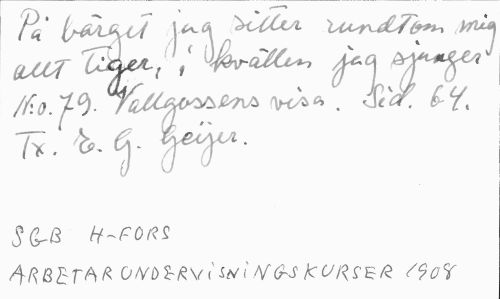 På bärget jag sitter rundtom mig
allt tiger, i kvällen jag sjunger
N:o. 79. Vallgossens visa. Sid. 64.
Tx. E. G. Geijer.
SGB H-FORS
ARBETARUNDERVISNINGSKURSER 1908